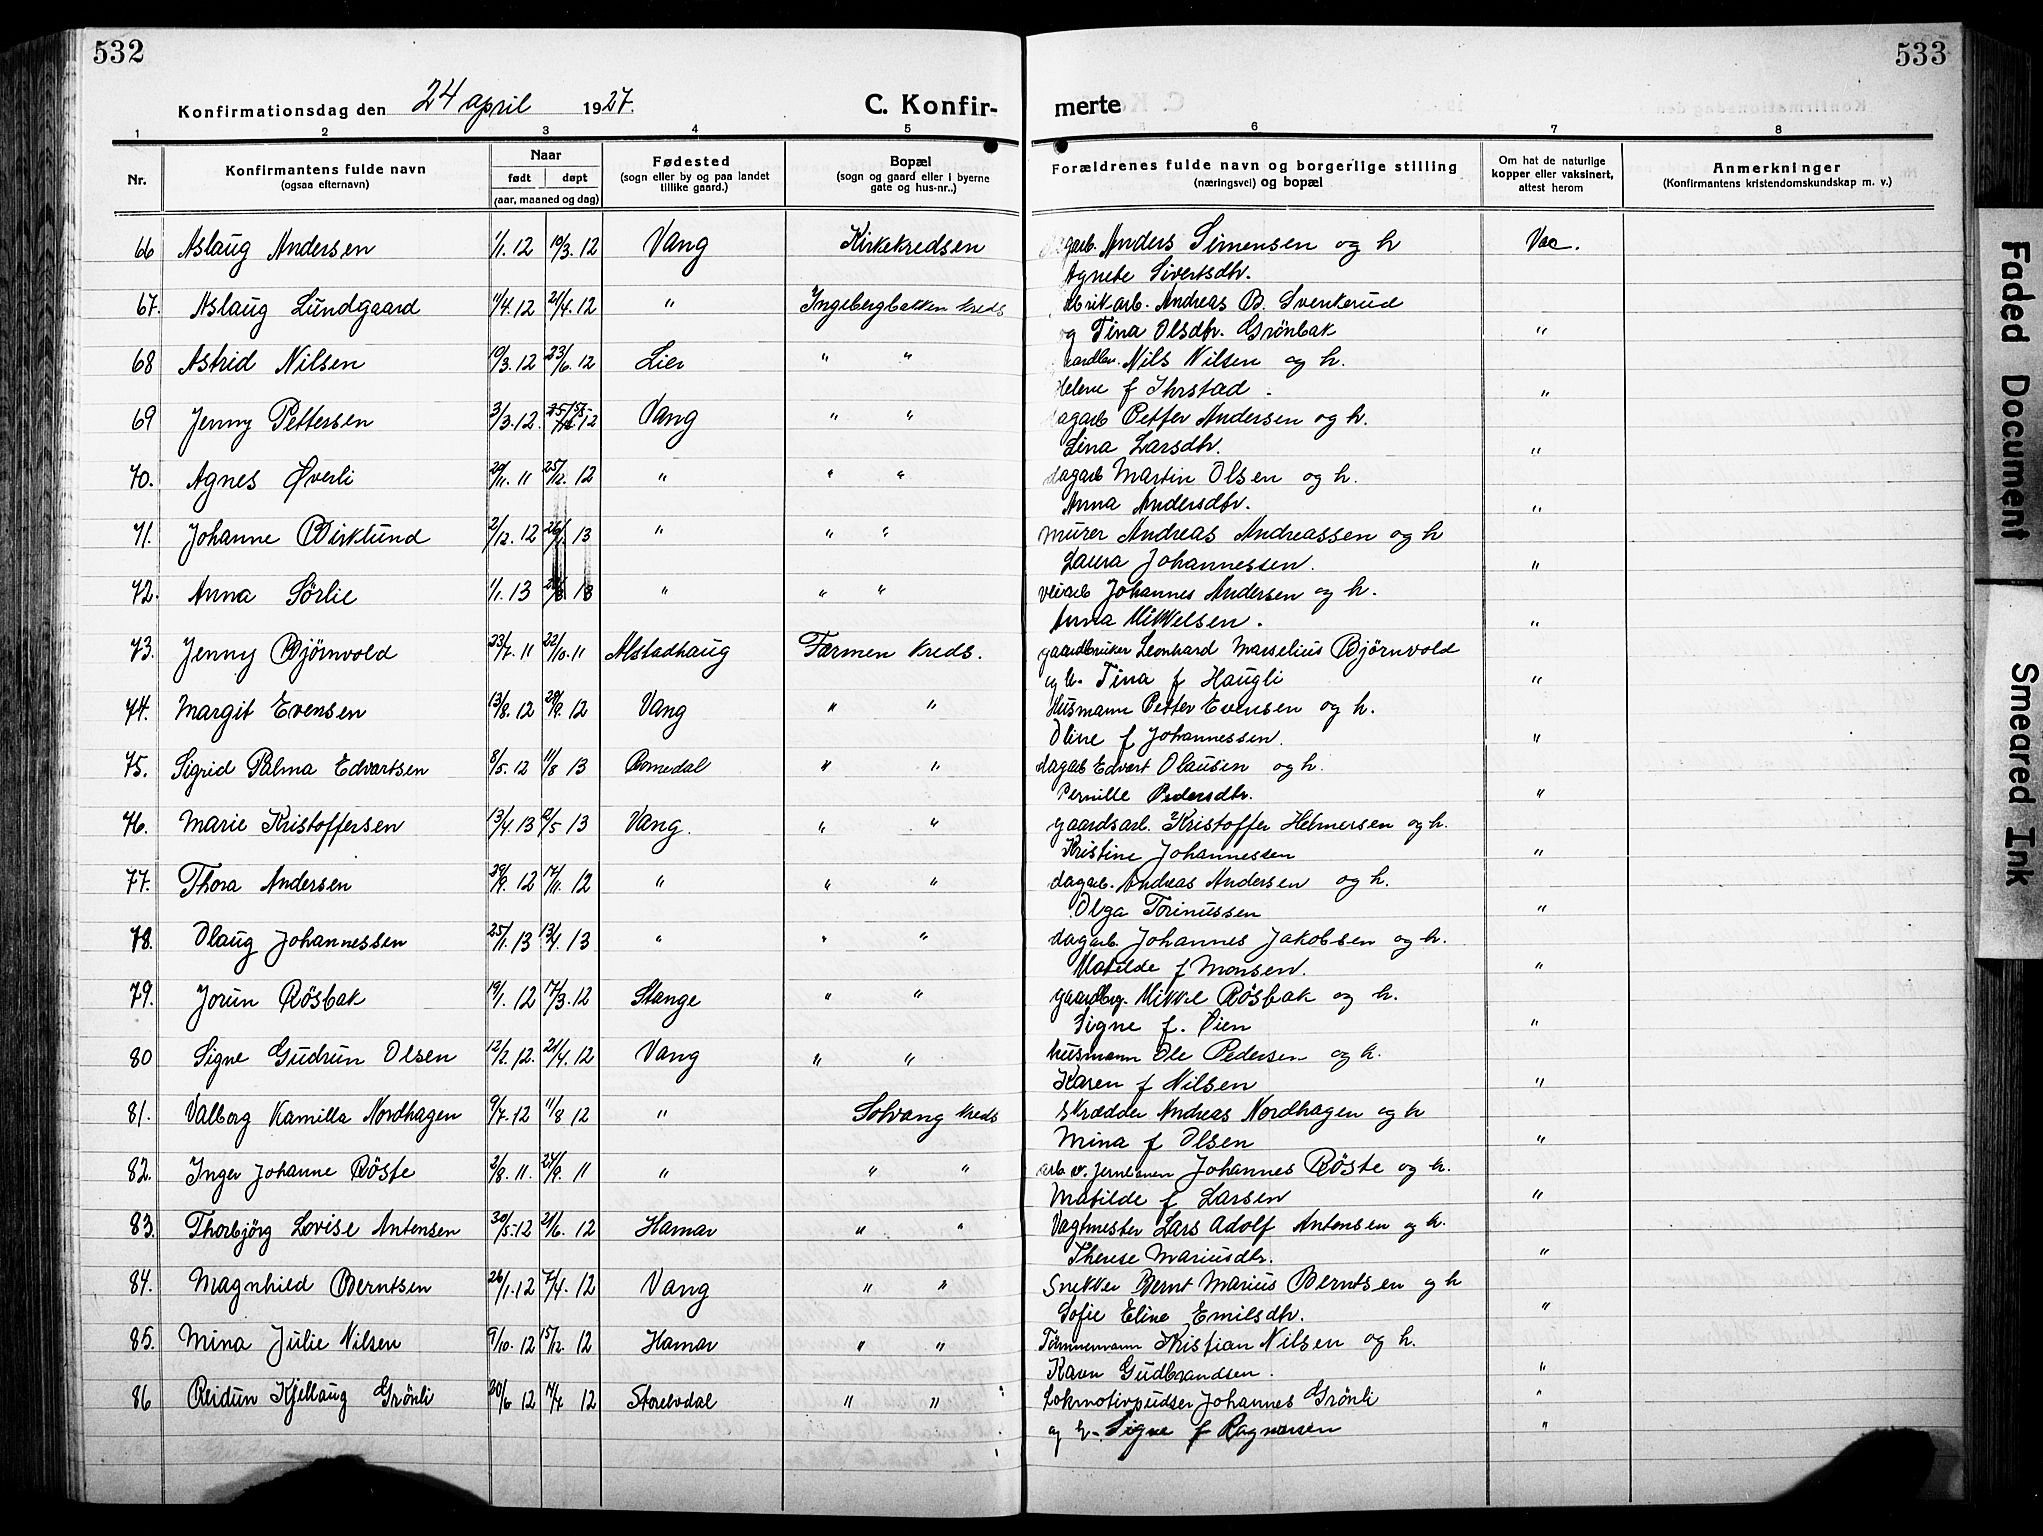 532
Konfirmationsdag den 24 april 1927.
C. Konfir-
1 2 3 4 5
Nr.
Konfirmantens fulde navn
(ogsaa efternavn)
Naar
født døpt
(aar, maaned og dag)
Fødested
(sogn eller by og paa landet
tillike gaard.)
Bopæl
(sogn og gaard eller i byerne
gate og hus-nr..)
66 Aslaug Andersen 1/1. 12 19/3. 12 Vang Kirkekredsen
67. Aslaug Lundgaard 11/4. 12 21/4. 12 " Ingebergbakken kreds
68 Astrid Nilsen 19/3. 12 23/6. 12 Lier " "
69 Jenny Pettersen 3/3. 12. 12 Vang " "
70. Agnes Øverli 29/11. 11 25/12. 12 " " "
71. Johanne Birklund 2/12. 12 26/1. 13 " " "
72. Anna Sørlie 1/1. 13 13 " " "
73. Jenny Bjørnvold 23/7. 11 22/10. 11 Alstadhaug Færmen kreds.
74. Margit Evensen 13/8. 12 29/9. 12 Vang " "
75. Sigrid Palma Edvartsen 8/5. 12 11/8 13 Romedal " "
76. Marie Kristoffersen 13/4. 13 12/5 13 Vang. " "
77. Thora Andersen 29/9. 12 17/11. 12 " " "
78. Olaug Johannessen 25/1. 13 13/4. 13 " " "
79. Jorun Røsbak 19/1. 12 17/3. 12 Stange " "
80 Signe Gudrun Olsen 12/2. 12. 21/4. 12 Vang " "
81. Valborg Kamilla Nordhagen 9/7. 12 11/8 12 " Solvang kreds
82. Inger Johanne Røste 2/8. 11. 24/9. 11 " " "
83. Thorbjørg Lovise Antonsen 30/5. 12 21/6. 12 Hamar " "
84. Magnhild Berntsen 26/1. 12 7/4. 12 Vang " "
85. Mina Julie Nilsen 9/10. 12 15/12. 12 Hamar " "
86 Reidun Kjellaug Grønli 20/6 12 14/7 12 Storelvdal " "
533
merte
6 7 8
Forældrenes fulde navn og borgerlige stilling
(næringsvei) og bopæl
Om hat de naturlige
kopper eller vaksinert,
attest herom
Anmerkninger
(Konfirmantens kristendomskundskap m. v.)
Anders Simensen og h Vac.
Agnete Sivertsdtr.
Andreas B. Svenkerud
og Tina Olsdtr. Grønbak "
Nils Nilsen og h.
Helene f Ihrstad . "
dagarb Petter Andersen og h.
Lina Larsdtr. "
dagarb Martin Olsen og h.
Anna Andersdtr. "
Murer Andreas Andreassen og h
Laura Johannessen. "
veiarb Johannes Andersen og h.
Anna Mikkelsen. "
gaardbruker Leonhard Marselius Bjørnvold
og h. Tina f Haugli "
Husmann Petter Evensen og h.
Oline f Johannessen. "
dagarb Edvart Olausen og h.
Pernille Pedersdtr. "
gaardsarb. Kristoffer Helmersen og h.
Kristine Johannessen "
dagarb. Andreas Andersen og h.
Olga Torinussen "
dagarb. Johannes Jakobsen og h.
Matilde f Monsen. "
gaardbrg. Mikkel Røsbak og h.
Signe f. Øien "
husmann Ole Pedersen og h.
Karen f Nilsen "
Skrædder Andreas Nordhagen og h
Mina f Olsen "
arb v. jernbanen Johannes Røste og h.
Matilde f Larsen "
Vagtmester Lars Adolf Antonsen og h.
Therese Mariusdtr. "
Snekker Bernt Marius Berntsen og h
Sofie Eline Emilsdtr. "
Tømmermann Kristian Nilsen og h.
Karen Gudbrandsen. "
Lokmotivpudser Johannes Grønli "
og h. Signe f Ragnarsen "
Faded Document
Smeared Ink